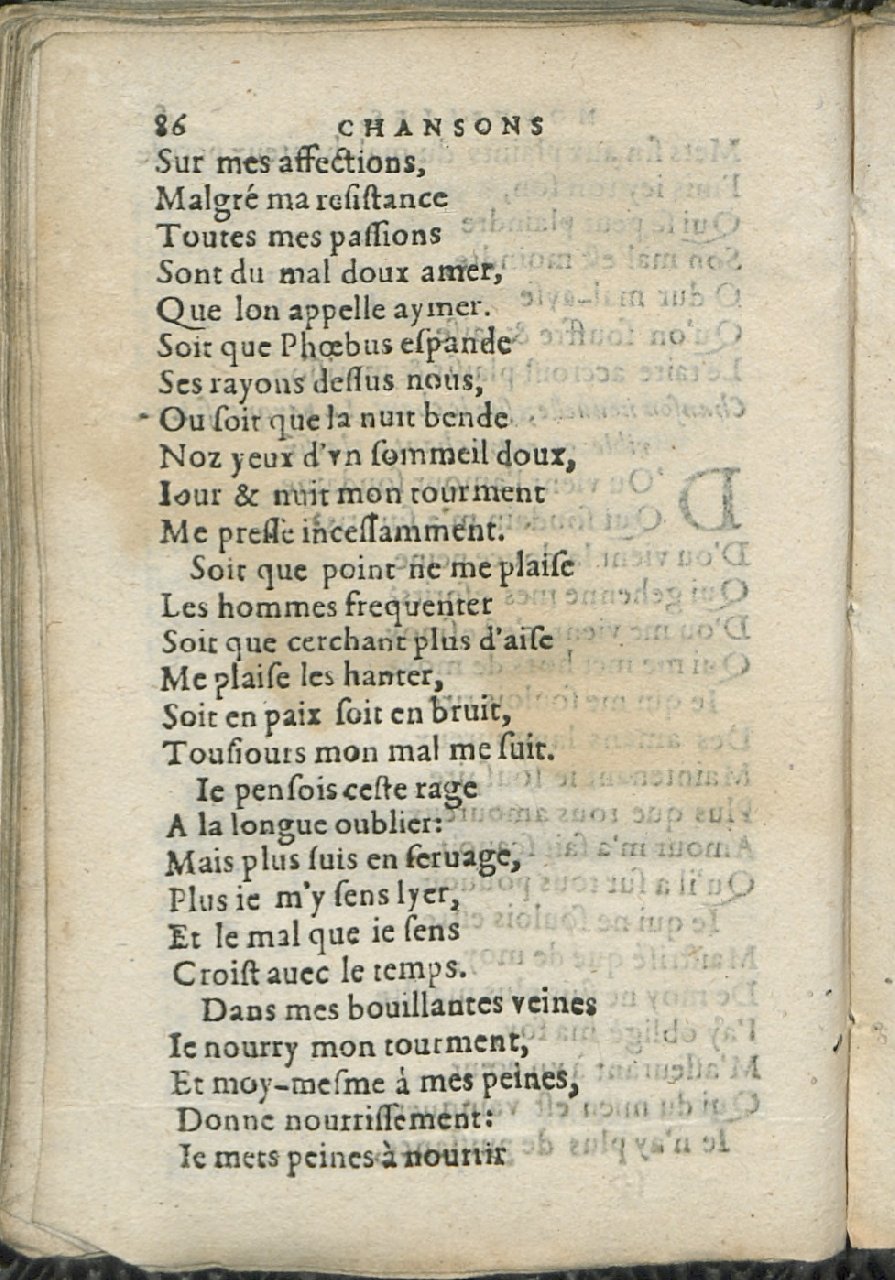 86 CHANSONS
Sur mes affections,
Malgré ma resiſtance
Toutes mes paſſions
Sont du mal doux amer,
Que lon appelle aymer.
Soit que Phœbus eſpande
Ses rayons deſſus nous,
Ou ſoit que la nuit bende
Noz yeux d'vn ſommeil doux,
Iour & nuit mon tourment
Me preſſe inceſſamment.
Soit que point ne me plaiſe
Les hommes frequenter
Soit que cerchant plus d'aiſe
Me plaiſe les hanter,
Soit en paix ſoit en bruit,
Touſiours mon mal me ſuit.
Ie penſois ceſte rage
A la longue oublier:
Mais plus ſuis en ſeruage,
Plus ie m'y ſens lyer,
Et le mal que ie ſens
Croiſt auec le temps.
Dans mes bouillantes veines
Ie nourry mon tourment,
Et moy-meſme à mes peines,
Donne nourriſſement:
Ie mets peines à nourrir